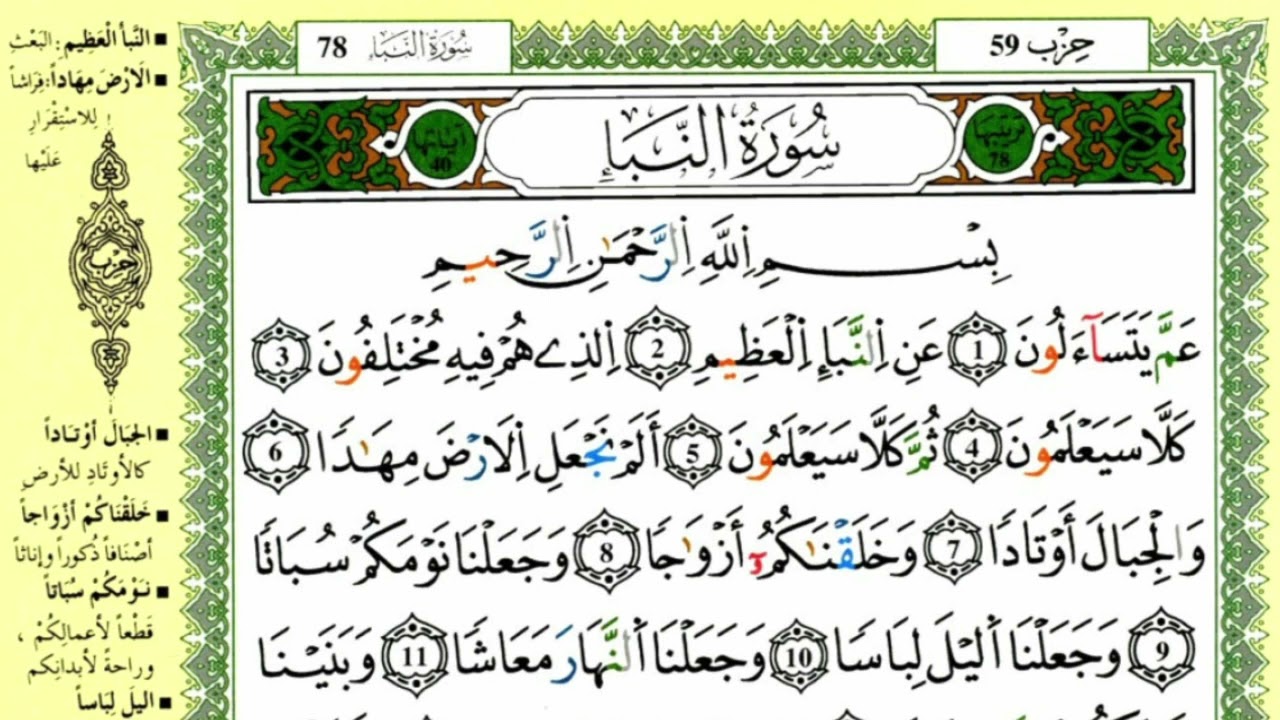 حِزْب 59
سُورَةُ النَّبَإِ 78
ترتيبها 78
سُورَةُ النَّبَإِ
آياتها 40
بِسْمِ اِللَّهِ اِلرَّحْمَٰنِ اِلرَّحِيمِ
عَمَّ يَتَسَآءَلُونَ 1 عَنِ اِلنَّبَإِ اِلْعَظِيمِ 2 اِلذِے هُمْ فِيهِ مُخْتَلِفُونَ 3
كَلَّا سَيَعْلَمُونَ 4 ثُمَّ كَلَّا سَيَعْلَمُونَ 5 أَلَمْ نَجْعَلِ اِلَارْضَ مِهَٰدًا 6
وَالْجِبَالَ أَوْتَادًا 7 وَخَلَقْنَٰكُمُۥٓ أَزْوَٰجًا 8 وَجَعَلْنَا نَوْمَكُمْ سُبَاتًا
9 وَجَعَلْنَا اَليْلَ لِبَاسًا 10 وَجَعَلْنَا اَلنَّهَارَ مَعَاشًا 11 وَبَنَيْنَا
■ النَّبَأ الْعَظِيمِ: البَعْثِ
■ الَارْضَ مِهَاداً: فِرَاشاً
لِلاسْتِقْرَارِ
عَلَيْها
حِزْب
■ الجِبَالَ أوْتَاداً
كالأوتَادِ للأرضِ
■ خَلَقْنَاكُمْ أزْوَاجاً
أصْنَافاً ذُكُوراً وإنَاثاً
■ نَوْمَكُمْ سُبَاتاً
قَطْعاً لأعمالِكُمْ ،
وراحةً لأبدانِكم
■ اليلَ لِبَاساً